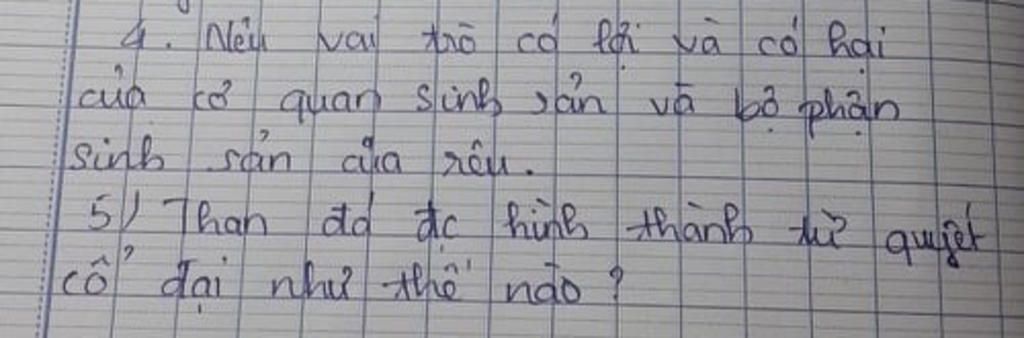 4. Nêu vai trò có lợi và có hại
của cơ quan sinh sản và bộ phận
sinh sản của rêu.
5) Than đá đc hình thành từ quyết
cổ đại như thế nào?